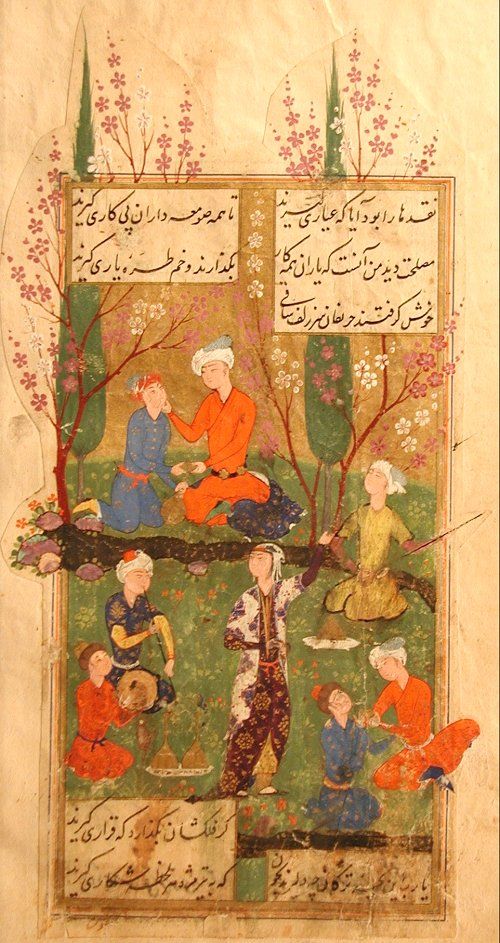 نقدها را بود آیا که عیاری گیرند
تا همه صومعه داران پی کاری گیرند
مصلحت دید من آنست که یاران همه کار
بگذارند و خم طره یاری گیرند
خوش گرفتند حریفان سر زلف ساقی
گر فلکشان بگذارد که قراری گیرند
یارب این بچه ترکان چه دلیرند بخون
که به تیر مژه هر لحظه شکاری گیرند